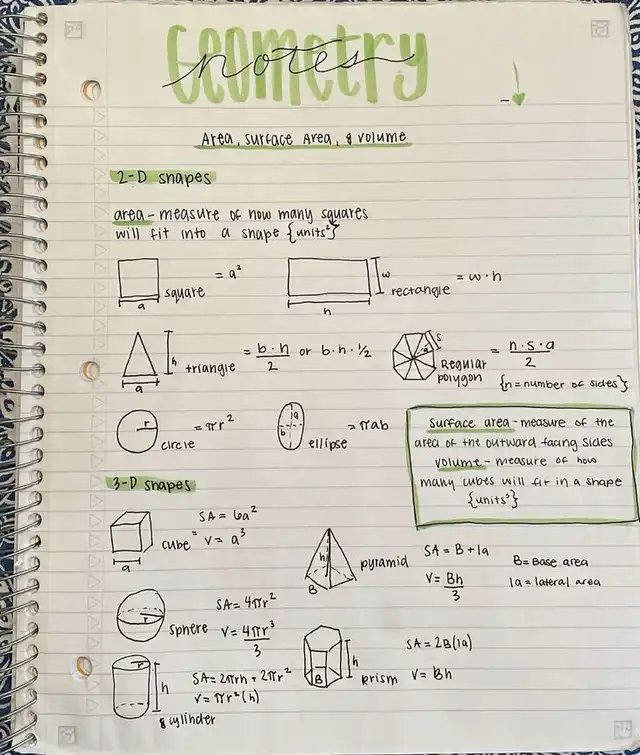 Geometry
notes
Area, surface Area, & volume
2-D shapes
area - measure of how many squares
will fit into a shape {units²}
a
square
= a²
h
w
rectangle
= w·h
a
h
triangle
= b·h/2 or b·h·1/2
s
a
Regular
polygon
= n·s·a/2
{n=number of sides}
r
circle
= πr²
a
b
ellipse
= πab
Surface area - measure of the
area of the outward facing sides
volume - measure of how
many cubes will fit in a shape
{units³}
3-D shapes
a
cube =
SA = 6a²
V = a³
h
B
pyramid
SA = B + la
V = Bh/3
B = Base area
la = lateral area
r
sphere
SA = 4πr²
V = 4πr³/3
r
h
cylinder
SA = 2πrh + 2πr²
V = πr²(h)
B
h
prism
SA = 2B(la)
V = Bh